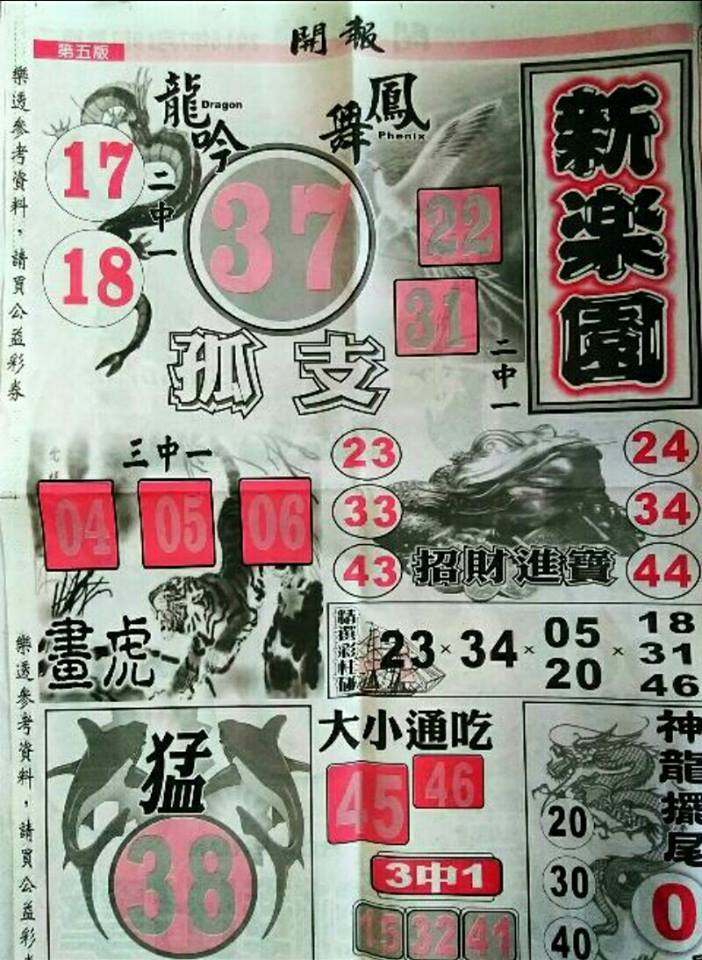 開報
第五版
樂透參考資料，請買公益彩券
龍吟
Dragon
鳳舞
Phenix
新楽園
17
18
二中一
37
22
31
二中一
孤支
三中一
04 05 06
畫虎
23
33
43
招財進寶
24
34
44
精選彩柱碰
23 × 34 × 05 20 × 18 31 46
樂透參考資料，請買公益彩
猛
38
大小通吃
45 46
3中1
15 32 41
神龍擺尾
20
30
40
0